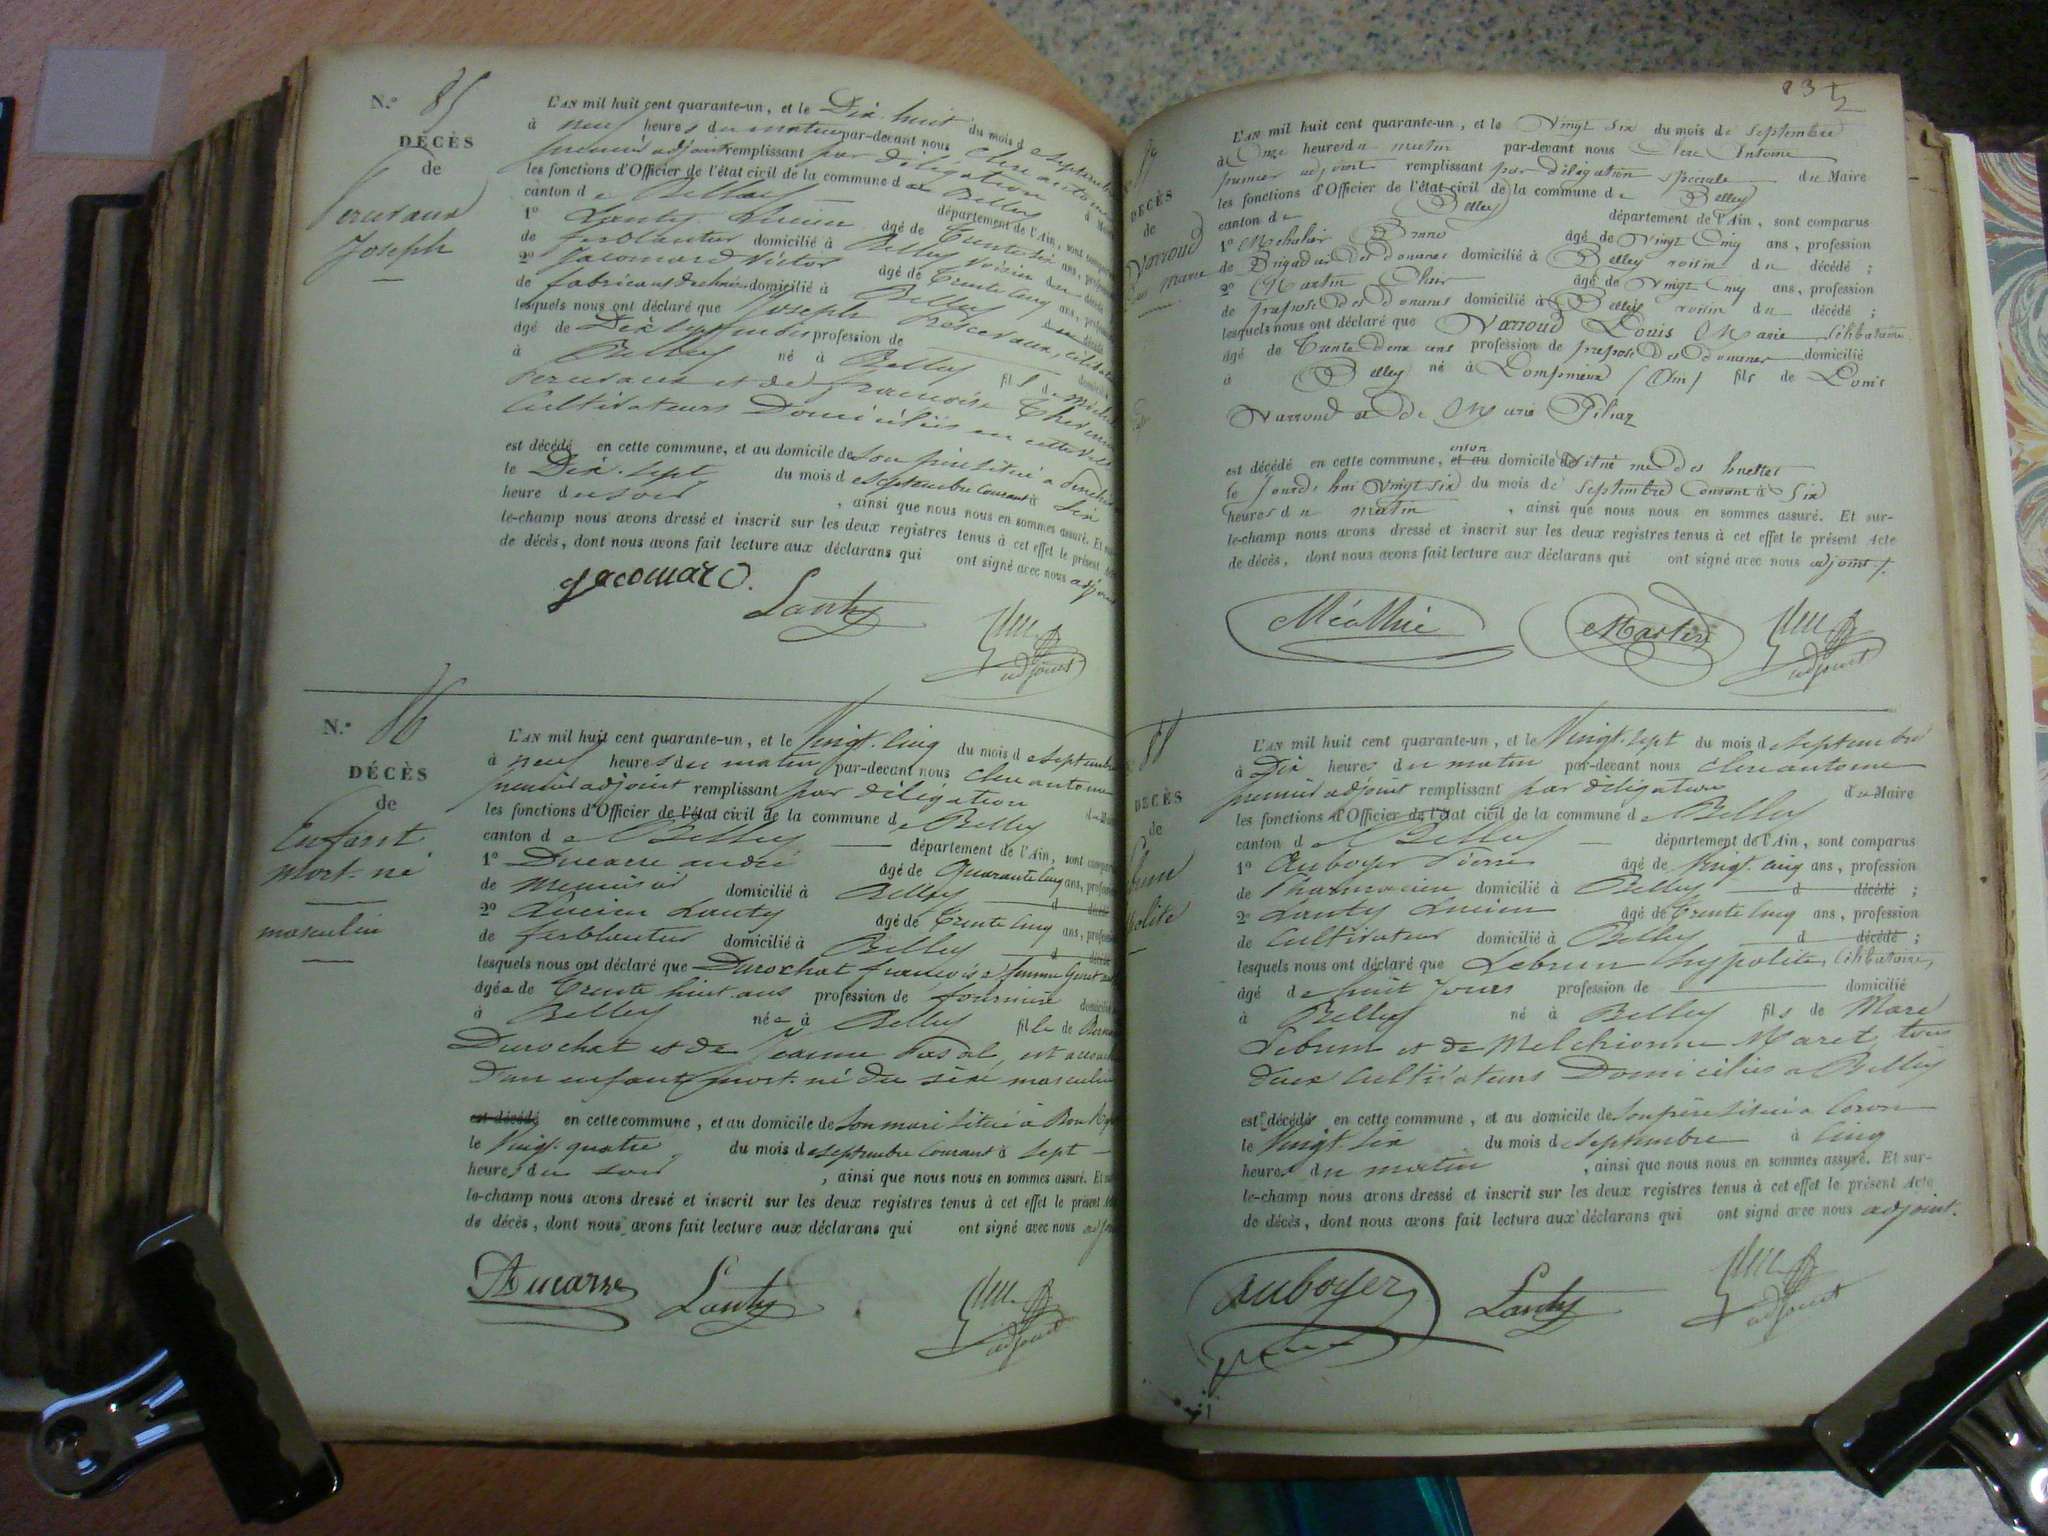 N.° 85
DÉCÈS
de
Joseph
L'AN mil huit cent quarante-un, et le Dix huit du mois de septembre
à neuf heures du matin par-devant nous Clerc antoine
premier adjoint remplissant par déligation
les fonctions d'Officier de l'état civil de la commune de Belley
canton de Belley département de l'Ain, sont comparus
1° Lanty Lucien âgé de Trente six ans, profession
de ferblantier domicilié à Belley voisin du décédé
2° Jacomard Victor âgé de Trente cinq ans, profession
de fabricant de domicilié à Belley
lesquels nous ont déclaré que Joseph
âgé de Dix sept mois profession de
à Belley né à Belley fils de
et de françoise
Cultivateurs Domiciliés en cette ville
est décédé en cette commune, et au domicile de son père situé à
le Dix-sept du mois de septembre courant à six
heure du soir , ainsi que nous nous en sommes assuré. Et sur-
le-champ nous avons dressé et inscrit sur les deux registres tenus à cet effet le présent acte
de décès, dont nous avons fait lecture aux déclarans qui ont signé avec nous adjoint
Jacomard.
Lanty
adjoint
N.° 86
DÉCÈS
de
Enfant
mort-né
masculin
L'AN mil huit cent quarante-un, et le Vingt-cinq du mois de septembre
à neuf heures du matin par-devant nous Clerc antoine
premier adjoint remplissant par déligation
les fonctions d'Officier de l'état civil de la commune de Belley
canton de Belley département de l'Ain, sont comparus
1° Ducarre andré âgé de Quarante cinq ans, profession
de menuisier domicilié à Belley d
2° Lucien Lanty âgé de Trente cinq ans, profession
de ferblantier domicilié à Belley d
lesquels nous ont déclaré que Durochat françoise femme
âgée de Trente huit ans profession de domicilié
à Belley née à Belley fille de
Durochat et de Jeanne est
D'un enfant mort-né du sexe masculin
est décédé en cette commune, et au domicile de son mari situé à
le Vingt-quatre du mois de septembre courant à sept
heures du soir , ainsi que nous nous en sommes assuré. Et
le-champ nous avons dressé et inscrit sur les deux registres tenus à cet effet le présent
de décès, dont nous avons fait lecture aux déclarans qui ont signé avec nous
Ducarre
Lanty
adjoint
83
DÉCÈS
de
Varroud
marie
L'AN mil huit cent quarante-un, et le Vingt six du mois de septembre
à Onze heures du matin par-devant nous Clerc Antoine
premier adjoint remplissant par déligation spéciale du Maire
les fonctions d'Officier de l'état civil de la commune de Belley
canton de Belley département de l'Ain, sont comparus
1° Bruno âgé de Vingt Cinq ans, profession
de Brigadier des douanes domicilié à Belley voisin du décédé ;
2° Martin âgé de Vingt Cinq ans, profession
de preposé des douanes domicilié à Belley voisin du décédé ;
lesquels nous ont déclaré que Varroud Louis Marie célibataire
âgé de Trente deux ans profession de preposé des douanes domicilié
à Belley né à (Ain) fils de Louis
Varroud et de Marie
est décédé en cette commune, et au domicile situé
le jourd'hui Vingt six du mois de septembre Courant à Six
heures du matin , ainsi que nous nous en sommes assuré. Et sur-
le-champ nous avons dressé et inscrit sur les deux registres tenus à cet effet le présent Acte
de décès, dont nous avons fait lecture aux déclarans qui ont signé avec nous adjoint
Martin
adjoint
88
DÉCÈS
de
L'AN mil huit cent quarante-un, et le Vingt-sept du mois de septembre
à Dix heures du matin par-devant nous Clerc antoine
premier adjoint remplissant par déligation du Maire
les fonctions d'Officier de l'état civil de la commune de Belley
canton de Belley département de l'Ain, sont comparus
1° Auboyer Pierre âgé de Vingt-cinq ans, profession
de Pharmacien domicilié à Belley d décédé ;
2° Lanty Lucien âgé de Trente cinq ans, profession
de Cultivateur domicilié à Belley d décédé ;
lesquels nous ont déclaré que Lebrun hypolite, Célibataire,
âgé de huit jours profession de domicilié
à Belley né à Belley fils de Marc
Lebrun et de Melchionne Maret, tous
deux Cultivateurs Domiciliés à Belley
est décédé en cette commune, et au domicile de son père situé à Coron
le Vingt six du mois de septembre à cinq
heures du matin , ainsi que nous nous en sommes assuré. Et sur-
le-champ nous avons dressé et inscrit sur les deux registres tenus à cet effet le présent Acte
de décès, dont nous avons fait lecture aux déclarans qui ont signé avec nous adjoint.
Auboyer
Lanty
adjoint